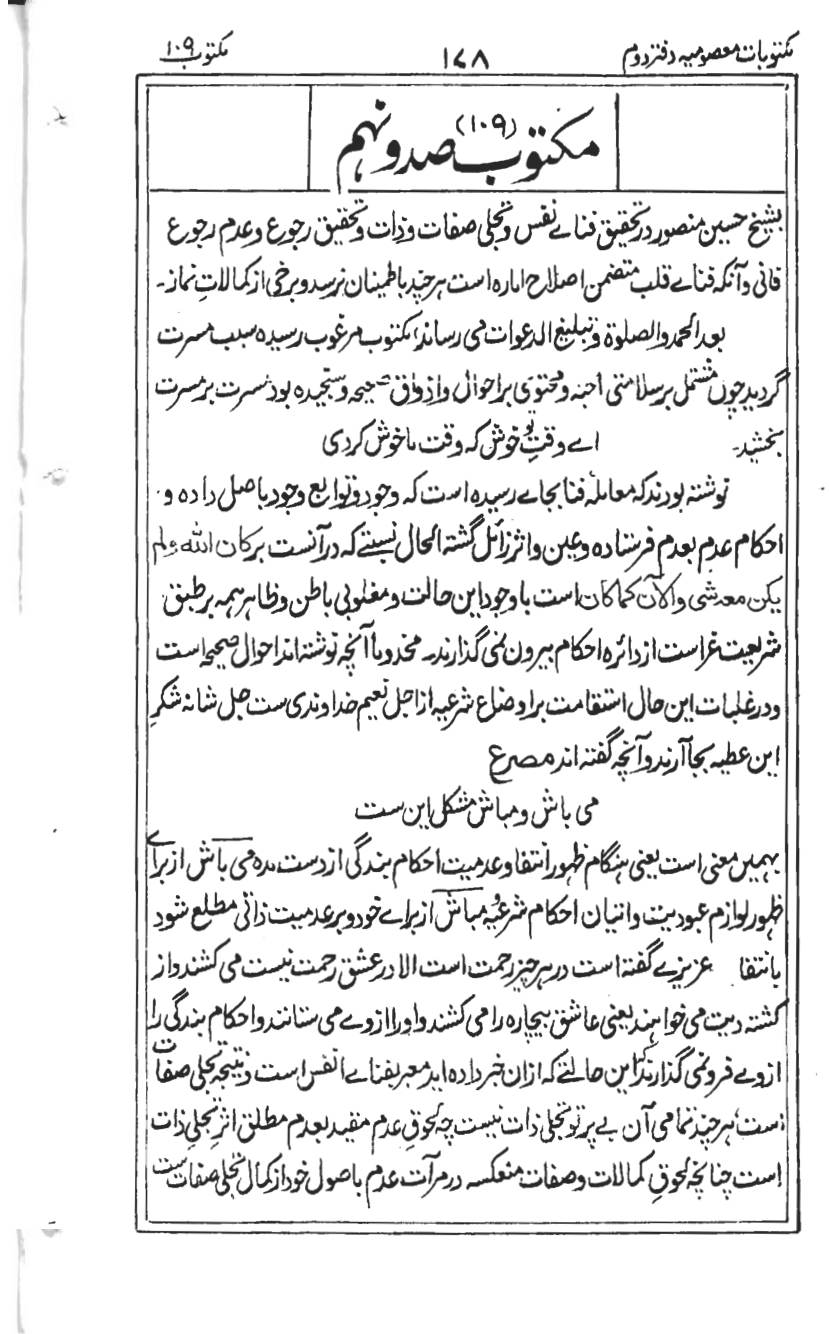 مکتوبات معصومیہ دفتر دوم
۱۷۸
مکتوب ۱۰۹
(۱۰۹)
مکتوب صد و نہم
بشیخ حسین منصور در تحقیق فنائے نفس و تجلی صفات و ذات و تحقیق رجوع و عدم رجوع
فانی و آنکہ فنائے قلب متضمن اصلاح امارہ است ہر چند باطمینان نرسد و برخی از کمالات نماز۔
بعد الحمد والصلوة و تبلیغ الدعوات می رساند مکتوب مرغوب رسیدہ سبب مسرت
گردید چوں مشتمل بر سلامتی احبہ و محتوی بر احوال و اذواق صحیحہ و سنجیدہ بود مسرت بر مسرت
بخشید۔ اے وقتِ تو خوش کہ وقت ما خوش کردی
نوشتہ بودند کہ معاملۂ فنا بجاے رسیدہ است کہ وجود و توابع وجود باصل دادہ و
احکام عدم بعدم فرستادہ و عین و اثر زائل گشتہ الحال نسبتے کہ در آنست بر کان اللہ ولم
یکن معہ شی والآن کما کان است باوجود این حالت و مغلوبی باطن و ظاہر ہمہ بر طبق
شریعت غراست از دائرہ احکام بیرون نمی گذارند۔ مخدوما آنچہ نوشتہ اند احوال صحیحہ است
و در غلبات این حال استقامت بر اوضاع شرعیہ از اجل نعیم خداوندی ست جل شانہ شکرِ
این عطیہ بجا آرند و آنچہ گفتہ اند مصرع
می باش و مباش مشکل این ست
بہمیں معنی است یعنی ہنگام ظہور انتفا و عدمیت احکام بندگی از دست مدہ می باش از براے
ظہور لوازم عبودیت و اتیان احکام شرعیہ و مباش از براے خود و بر عدمیت ذاتی مطلع شود
بانتفا عزیزے گفتہ است در ہر چیز رحمت است الا در عشق رحمت نیست می کشند و از
کشتہ دیت می خواہند یعنی عاشق بیچارہ را می کشند و اورا از وے می ستانند و احکام بندگی را
ازوے فرو نمی گذارند این حالتے کہ ازان خبر دادہ اید معبر بفناے انفس است و نتیجہ تجلی صفات
است ہر چند تمامی آن بے پرتو تجلی ذات نیست چہ لحوقِ عدم مقید بعدم مطلق اثرِ تجلیِ ذات
است چنانچہ لحوقِ کمالات و صفات منعکسہ در مرآت عدم باصول خود از کمال تجلی صفات ست